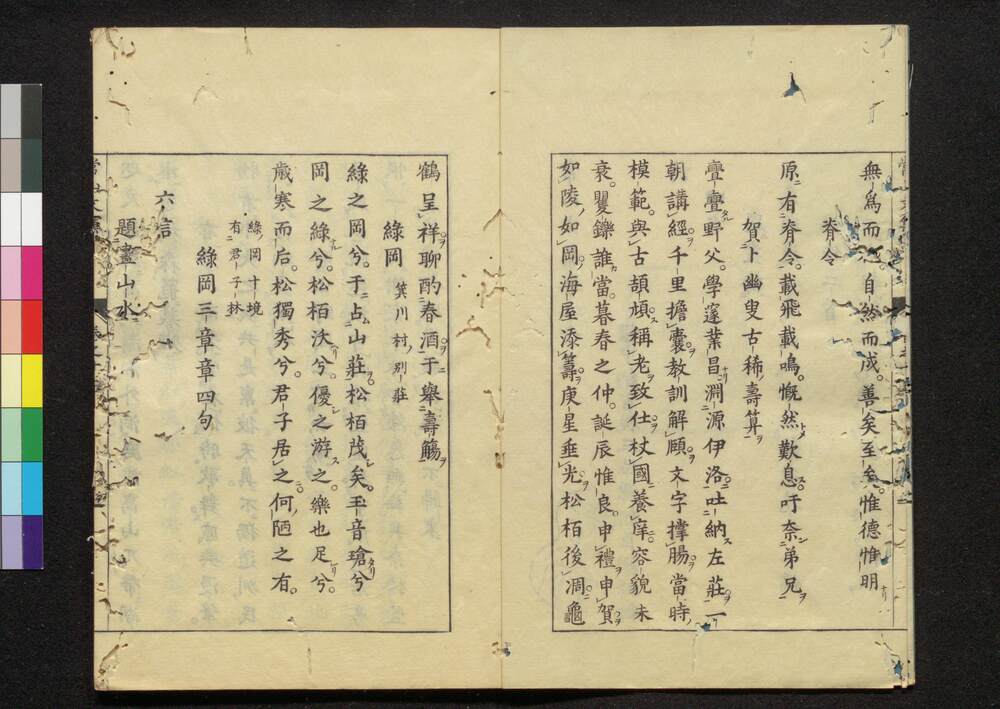 無爲而 自然而成善矣至矣惟德惟明
脊令
原有脊令載飛載鳴慨然歎息吁奈弟兄
賀卜幽叟古稀壽算
亹亹野父學蓬業昌淵源伊洛吐納左莊
朝講經千里擔囊教訓解頤文字撑腸當時
模範與古頡頏稱老致仕杖國養庠容貌未
衰矍鑠誰當暮春之仲誕辰惟良申禮申賀
如陵如岡海屋添籌庚星垂光松栢後凋龜
鶴呈祥聊酌春酒于擧壽觴
綠岡 箕川村別莊
綠之岡兮于占山莊松栢茂矣玉音瑲兮
岡之綠兮松栢沃兮優之游之樂也足兮
歲寒而后松獨秀兮君子居之何陋之有
綠岡十境
有君子林
綠岡三章章四句
六言
題畫山水